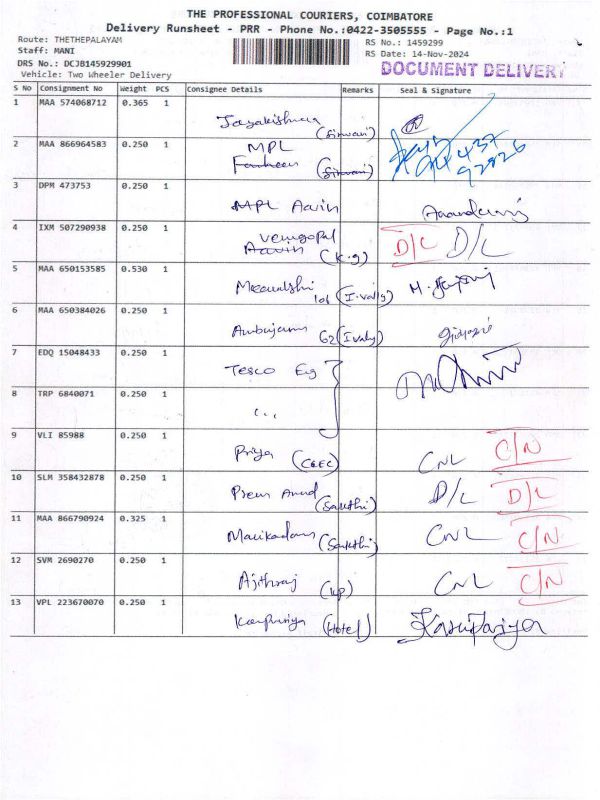 THE PROFESSIONAL COURIERS, COIMBATORE
Delivery Runsheet - PRR - Phone No.:0422-3505555 - Page No.:1
Route: THETHEPALAYAM
RS No.: 1459299
Staff: MANI
RS Date: 14-Nov-2024
DRS No.: DCJB145929901
DOCUMENT DELIVERY
Vehicle: Two Wheeler Delivery
S No Consignment No Weight PCS Consignee Details Remarks Seal & Signature
1 MAA 574068712 0.365 1
2 MAA 866964583 0.250 1 MPL
3 DPM 473753 0.250 1 MPL Aavin
4 IXM 507290938 0.250 1 Venugopal (K.g) D/L D/L
5 MAA 650153585 0.530 1 Meenakshi 101 (I.vally)
6 MAA 650384026 0.250 1 Ambujam 62 (I.valy)
7 EDQ 15048433 0.250 1 Tesco Eg
8 TRP 6840071 0.250 1 ...
9 VLI 85988 0.250 1 Priya CNL C/N
10 SLM 358432878 0.250 1 Prem Anand (Sakthi) D/L D/L
11 MAA 866790924 0.325 1 (Sakthi) CNL C/N
12 SVM 2690270 0.250 1 Ajithraj (kp) CNL C/N
13 VPL 223670070 0.250 1 (Hotel)